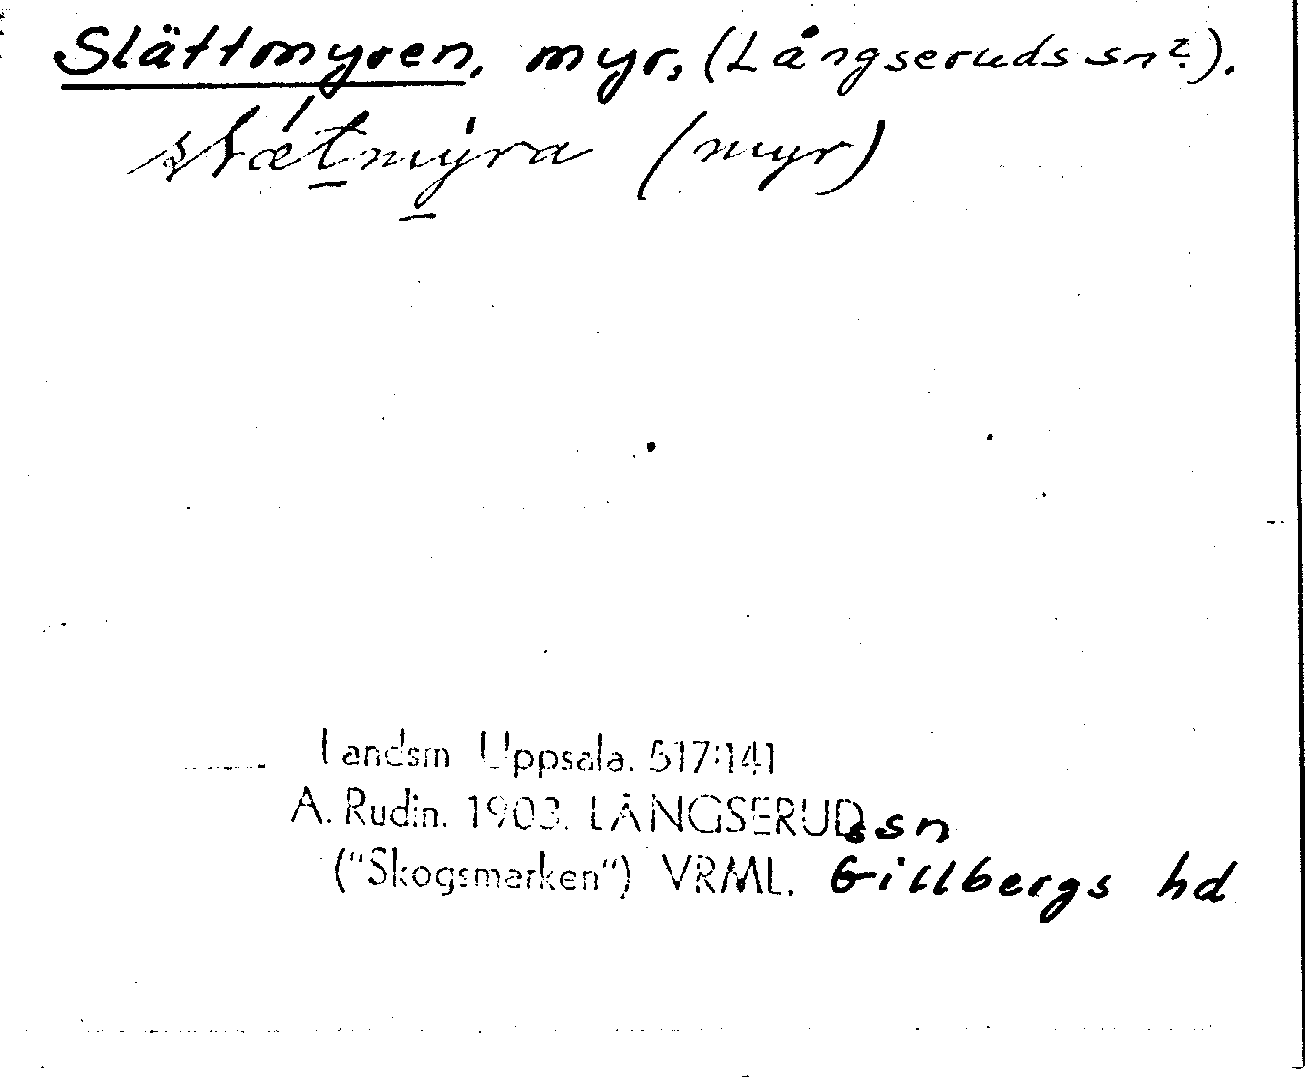 Slättmyren, myr, (Långseruds sn?).
slætmýra (myr)
Landsm Uppsala. 517:141
A. Rudin. 1903. LÅNGSERUDs sn
("Skogsmarken") VRML. Gillbergs hd